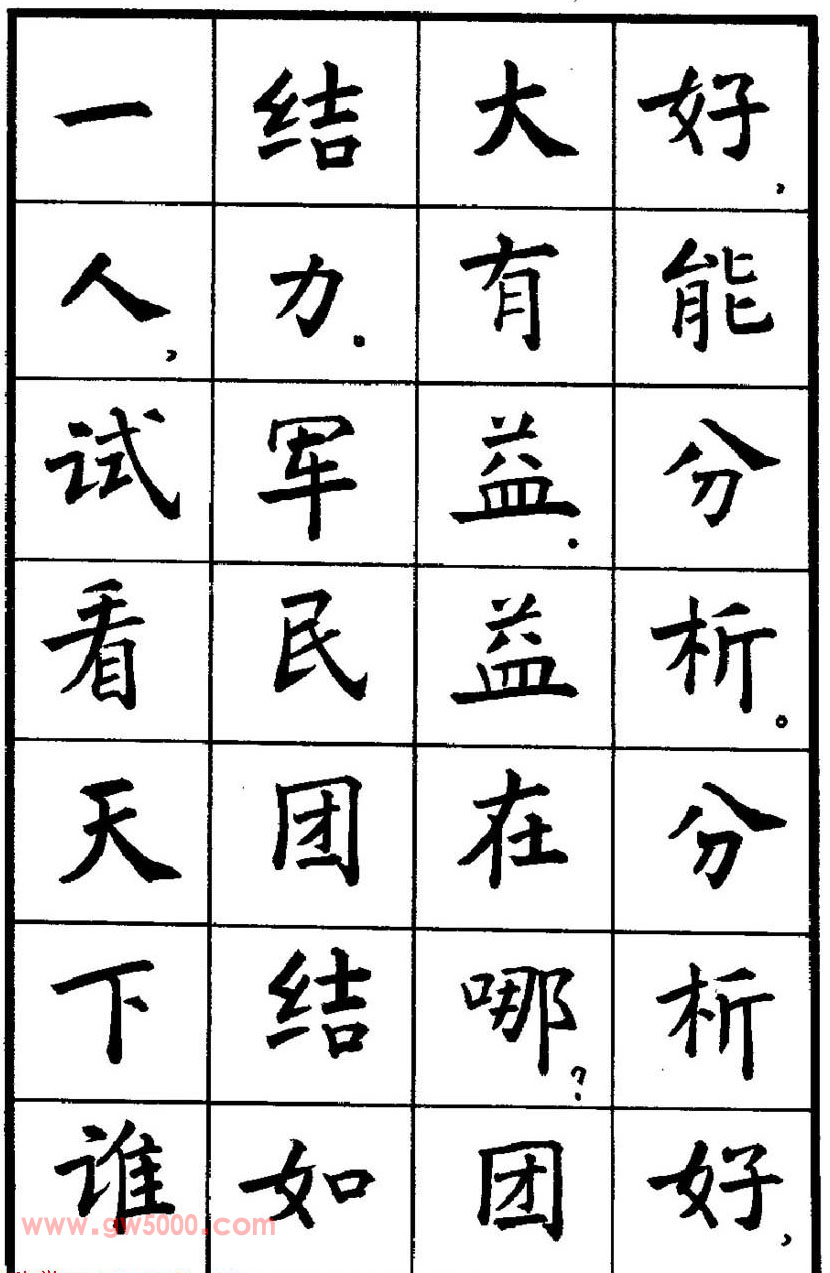 好,能分析。分析好,
大有益。益在哪?团
结力。军民团结如
一人,试看天下谁
www.gw5000.com